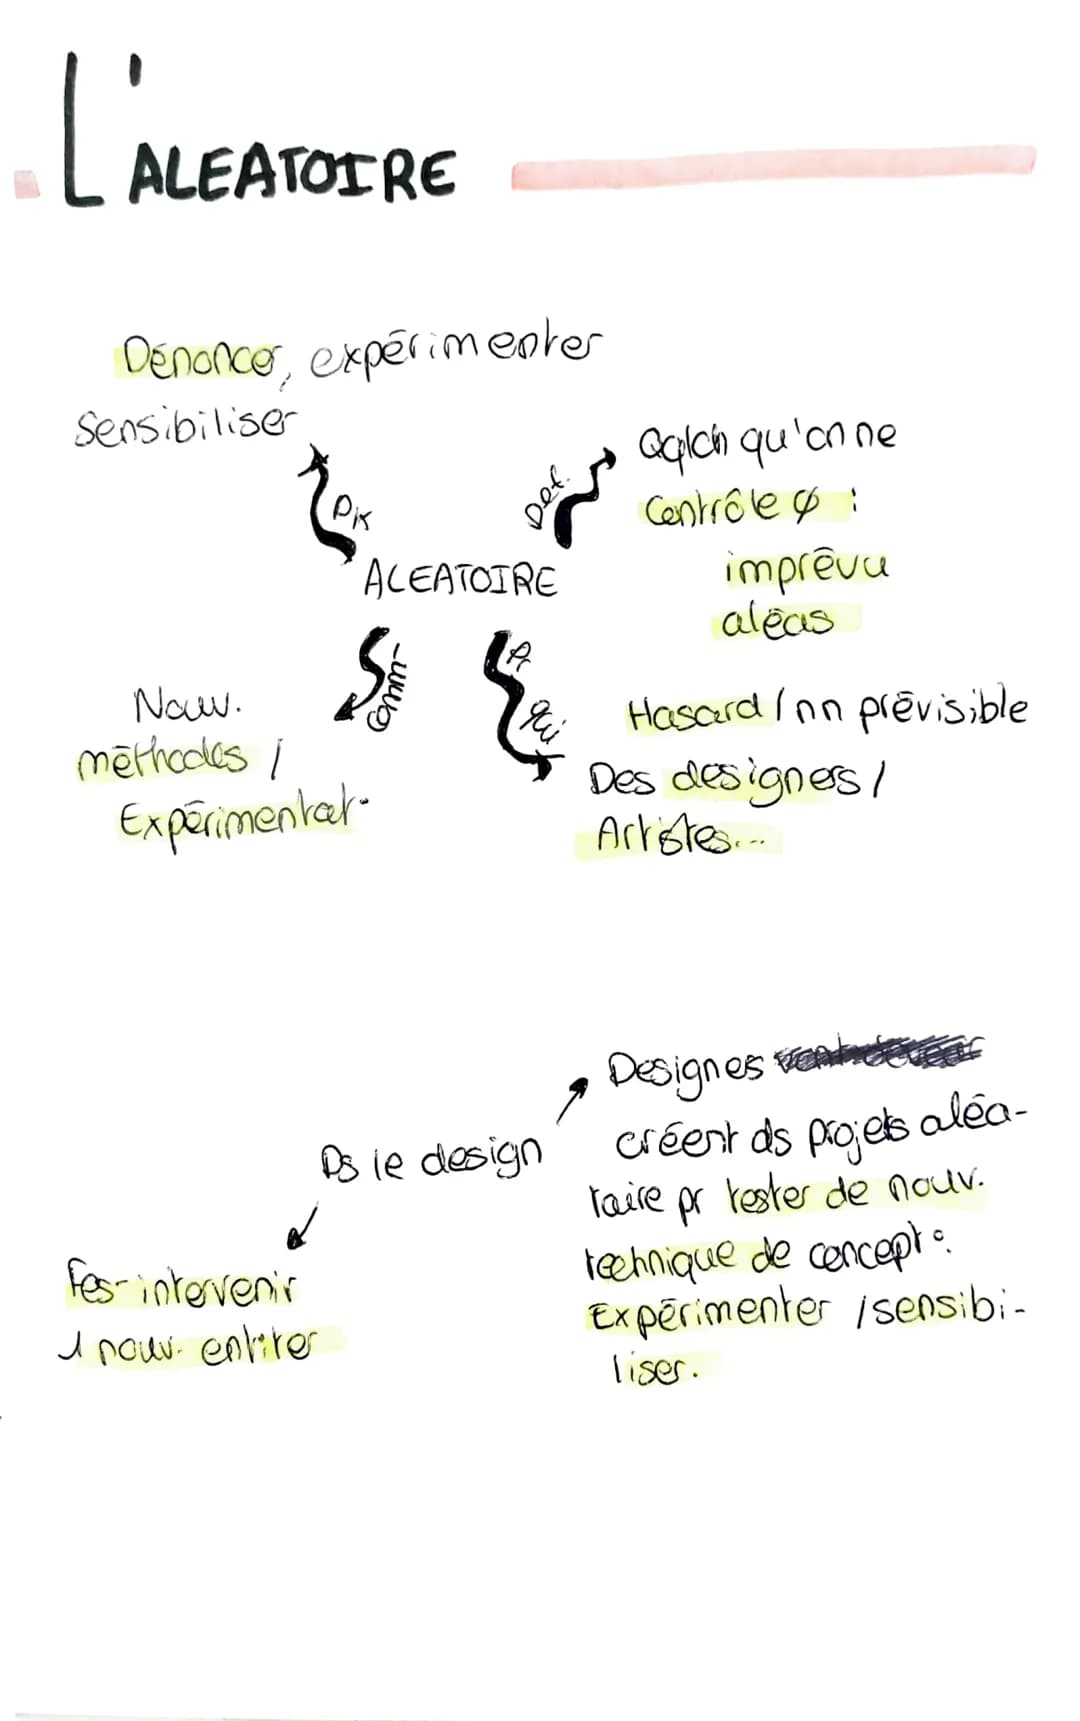 L'ALEATOIRE
Dénoncer, expérimenter
Sensibiliser
Def.
Qqlch qu'on ne
Contrôle ϕ :
imprévu
aléas
PK
ALEATOIRE
comm-
Pr
qui
Nouv.
méthodes /
Expérimentat-
Hasard / nn prévisible
Des designers /
Artistes...
Ds le design
Designes
créent ds projets aléa-
toire pr tester de nouv.
technique de concept° :
Expérimenter / sensibi-
liser.
intervenir
1 nouv. entiter